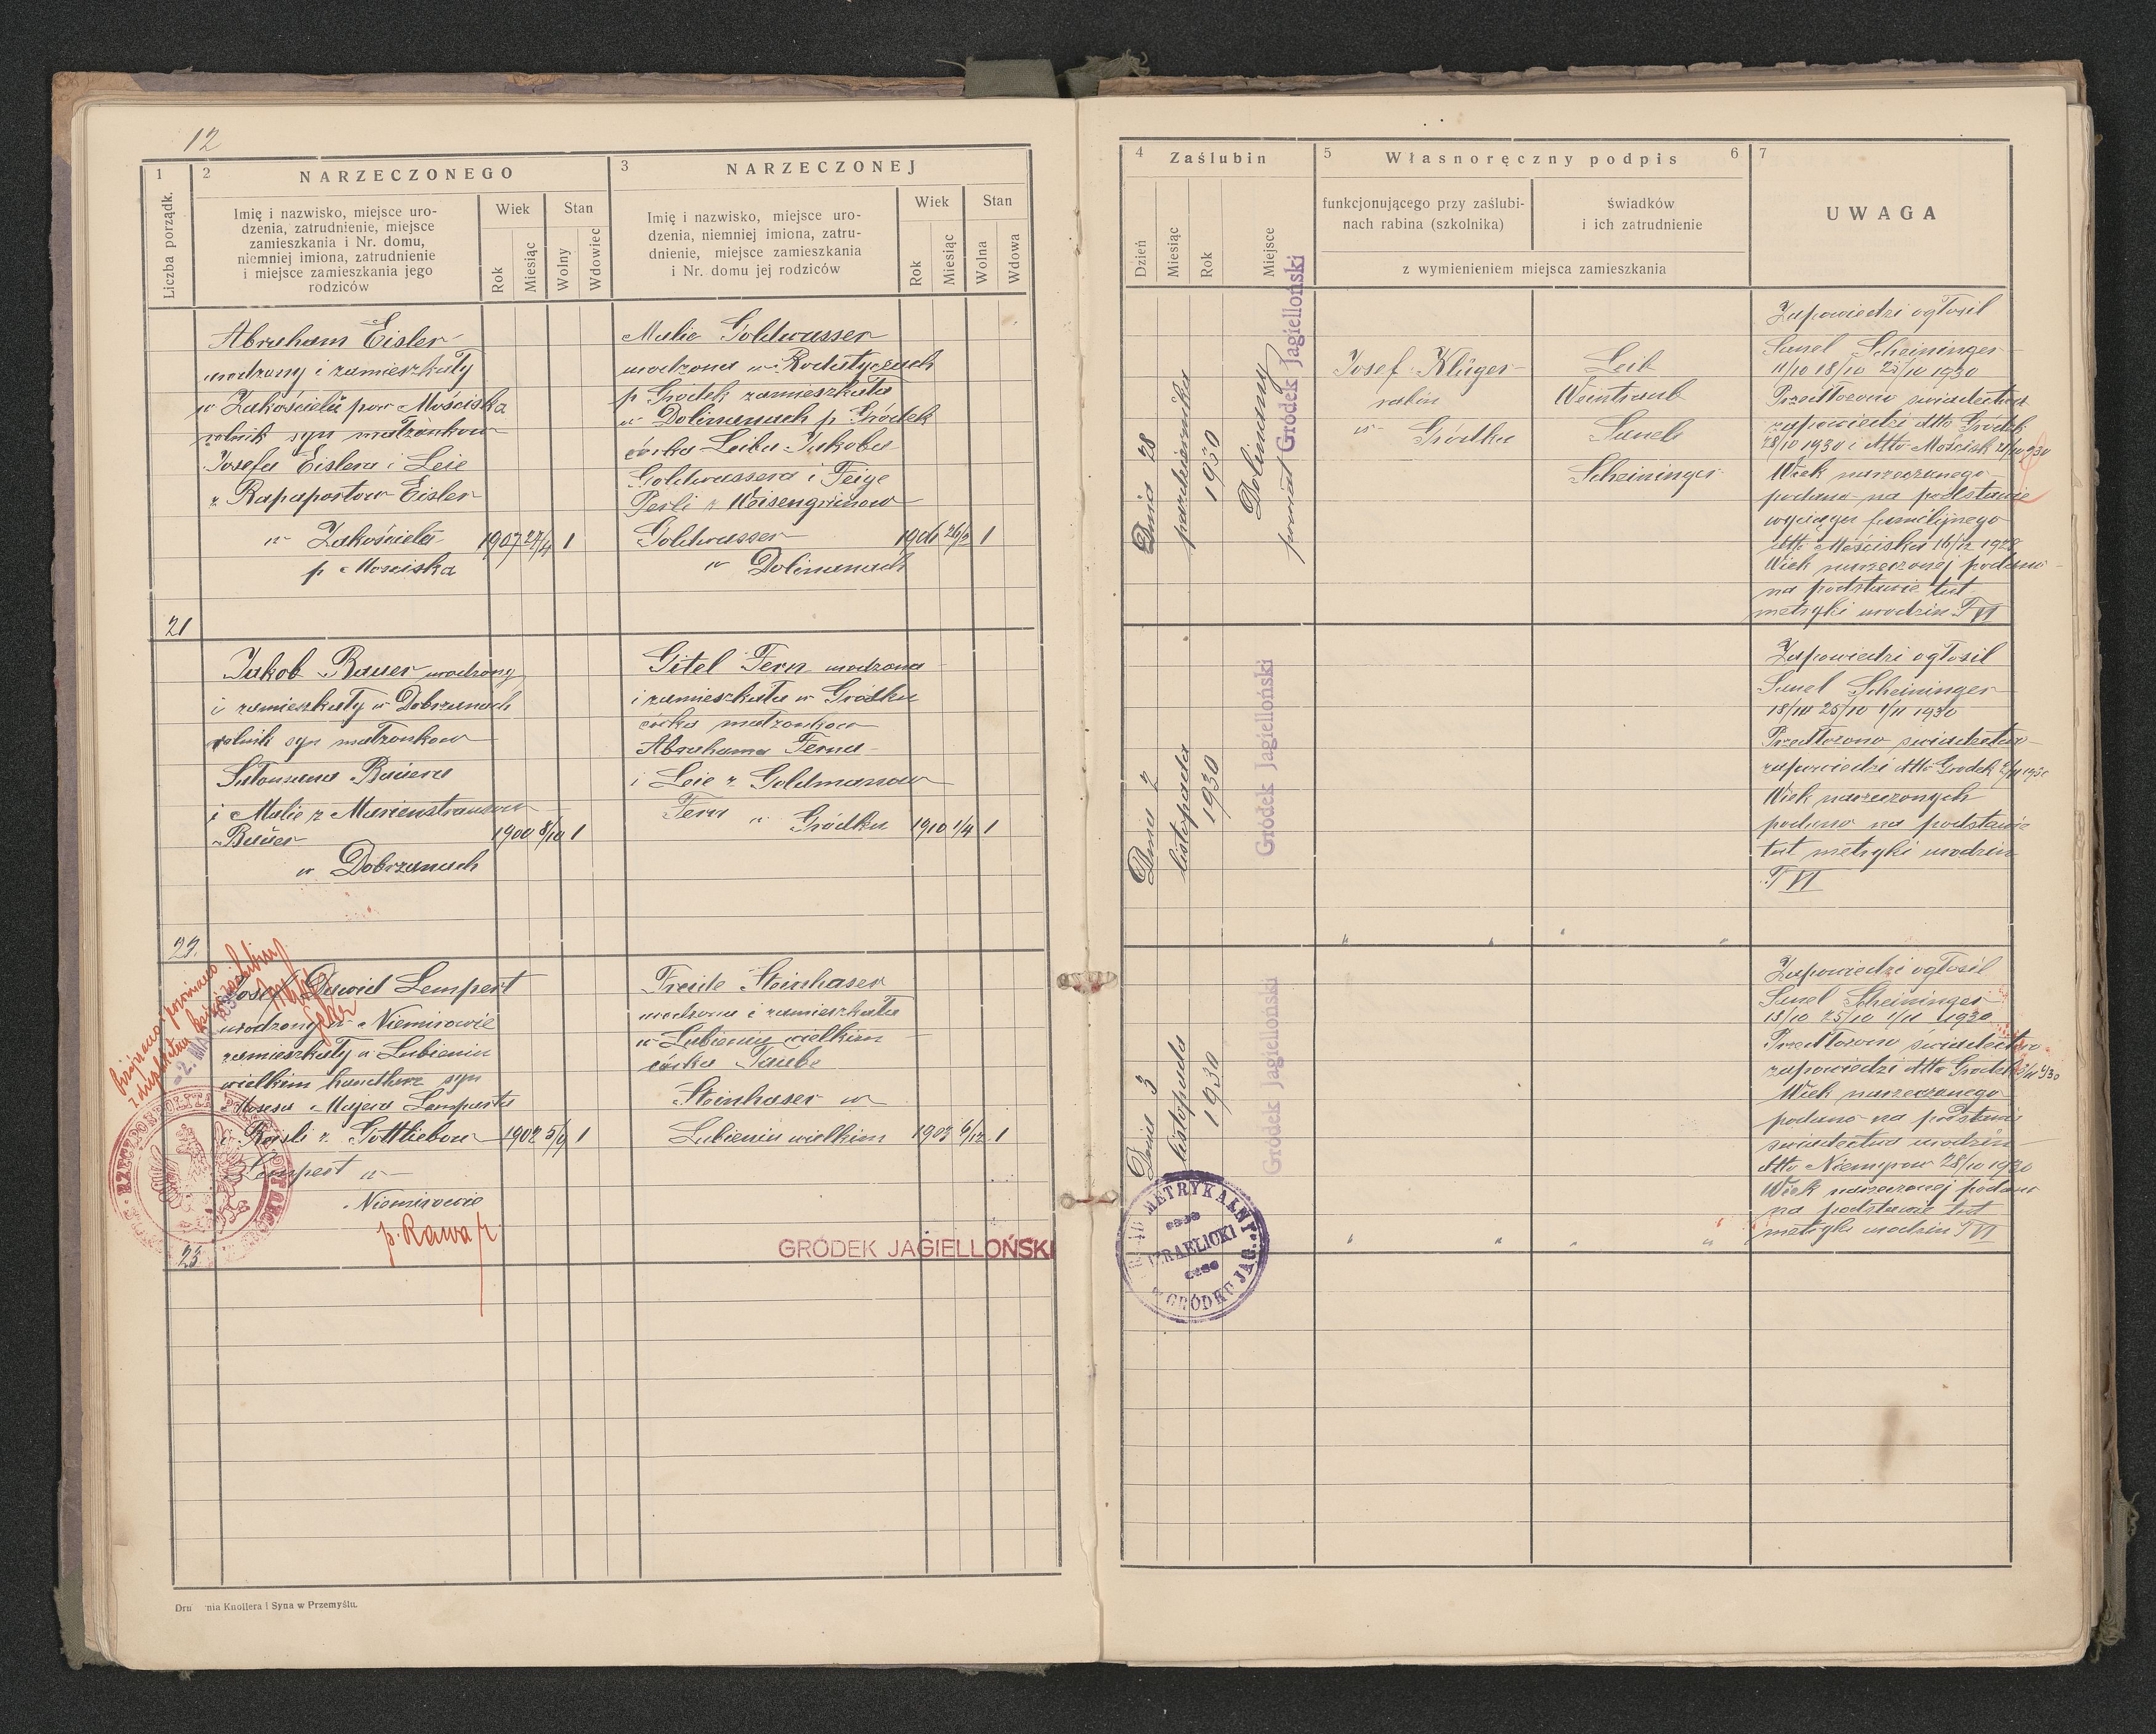 12
1
2
NARZECZONEGO
3
NARZECZONEJ
Liczba porządk.
Imię i nazwisko, miejsce uro-
dzenia, zatrudnienie, miejsce
zamieszkania i Nr. domu,
niemniej imiona, zatrudnienie
i miejsce zamieszkania jego
rodziców
Wiek
Stan
Rok
Miesiąc
Wolny
Wdowiec
Imię i nazwisko, miejsce uro-
dzenia, niemniej imiona, zatru-
dnienie, miejsce zamieszkania
i Nr. domu jej rodziców
Wiek
Stan
Rok
Miesiąc
Wolna
Wdowa
Abraham Eisler
urodzony i zamieszkały
w Zakościelu pow Mościska
rolnik syn małżonków
Josefa Eislera i Leie
z Rapaportów Eisler
w Zakościelu
p Mosciska
1907 27/4 1
Malie Goldwasser
urodzona w Rodatyczach
p Gródek zamieszkała
w Dolinianach p Gródek
córka Leiba Jakoba
Goldwassera i Feige
Perli z Weisengrünow
Goldwasser
w Dolinianach
1906 26/2 1
21
Jakob Bauer urodzony
i zamieszkały w Dobrzanach
rolnik syn małżonkow
Salomona Bauera
i Malie z Marienstrausow
Bauer
w Dobrzanach
1900 8/10 1
Gitel Fern urodzona
i zamieszkała w Gródku
córka małzonkow
Abrahama Ferna
i Leie z Goldmanow
Fern w Gródku
1910 1/4 1
22.
Josef Dawid Lempert
urodzony w Niemirowie
zamieszkały w Lubieniu
wielkim handlarz syn
Mosesa Majera Lemperta
i Rojsli z Gottliebow
1902 5/9 1
Lempert w
Niemirowie
p. Rawa r
Freide Steinhaser
urodzona i zamieszkała
w Lubieniu wielkim
córka Taube
Steinhaser w
Lubieniu wielkim
1903 6/12 1
23
GRÓDEK JAGIELLOŃSKI
Drukarnia Knollera i Syna w Przemyślu.
4
Zaślubin
5
Własnoręczny podpis
6
7
Dzień
Miesiąc
Rok
Miejsce
funkcjonującego przy zaślubi-
nach rabina (szkolnika)
świadków
i ich zatrudnienie
z wymienieniem miejsca zamieszkania
UWAGA
Dnia 28
pazdziernika
1930
Doliniany
powiat Gródek Jagielloński
Josef Klüger
rabin
w Gródku
Leib
Weintraub
Sanel
Scheininger
Zapowiedzi ogłosil
Sanel Scheininger
11/10 18/10 25/10 1930
Przedłożono swiadectwa
zapowiedzi dtto Gródek
28/10 1930 i dtto Mościsk
Wiek narzeczonego
podano na podstawie
wyciągu familijnego
dtto Mościska 16/12 1928
Wiek narzeczonej podano
na podstawie tut
metryki urodzin T VI
Dnia 2
listopada
1930
Gródek Jagielloński
Zapowiedzi ogłosil
Sanel Scheininger
18/10 25/10 1/11 1930
Przedłozono swiadectwo
zapowiedzi dtto Grodek 2/11 1930
Wiek narzeczonych
podano na podstawie
tut metryki urodzin
T VI
Dnia 3
listopada
1930
Gródek Jagielloński
Zapowiedzi ogłosil
Sanel Scheininger
18/10 25/10 1/11 1930
Przedłozono świadectwo
zapowiedzi dtto Grodek 3/11 930
Wiek narzeczonego
podano na podstawie
swiadectwa urodzin
dtto Niemyrow 28/10 1920
Wiek narzeczonej podano
na podstawie tut
metryki urodzin T VI
URZĄD METRYKALNY
IZRAELICKI
w GRÓDKU JAG.